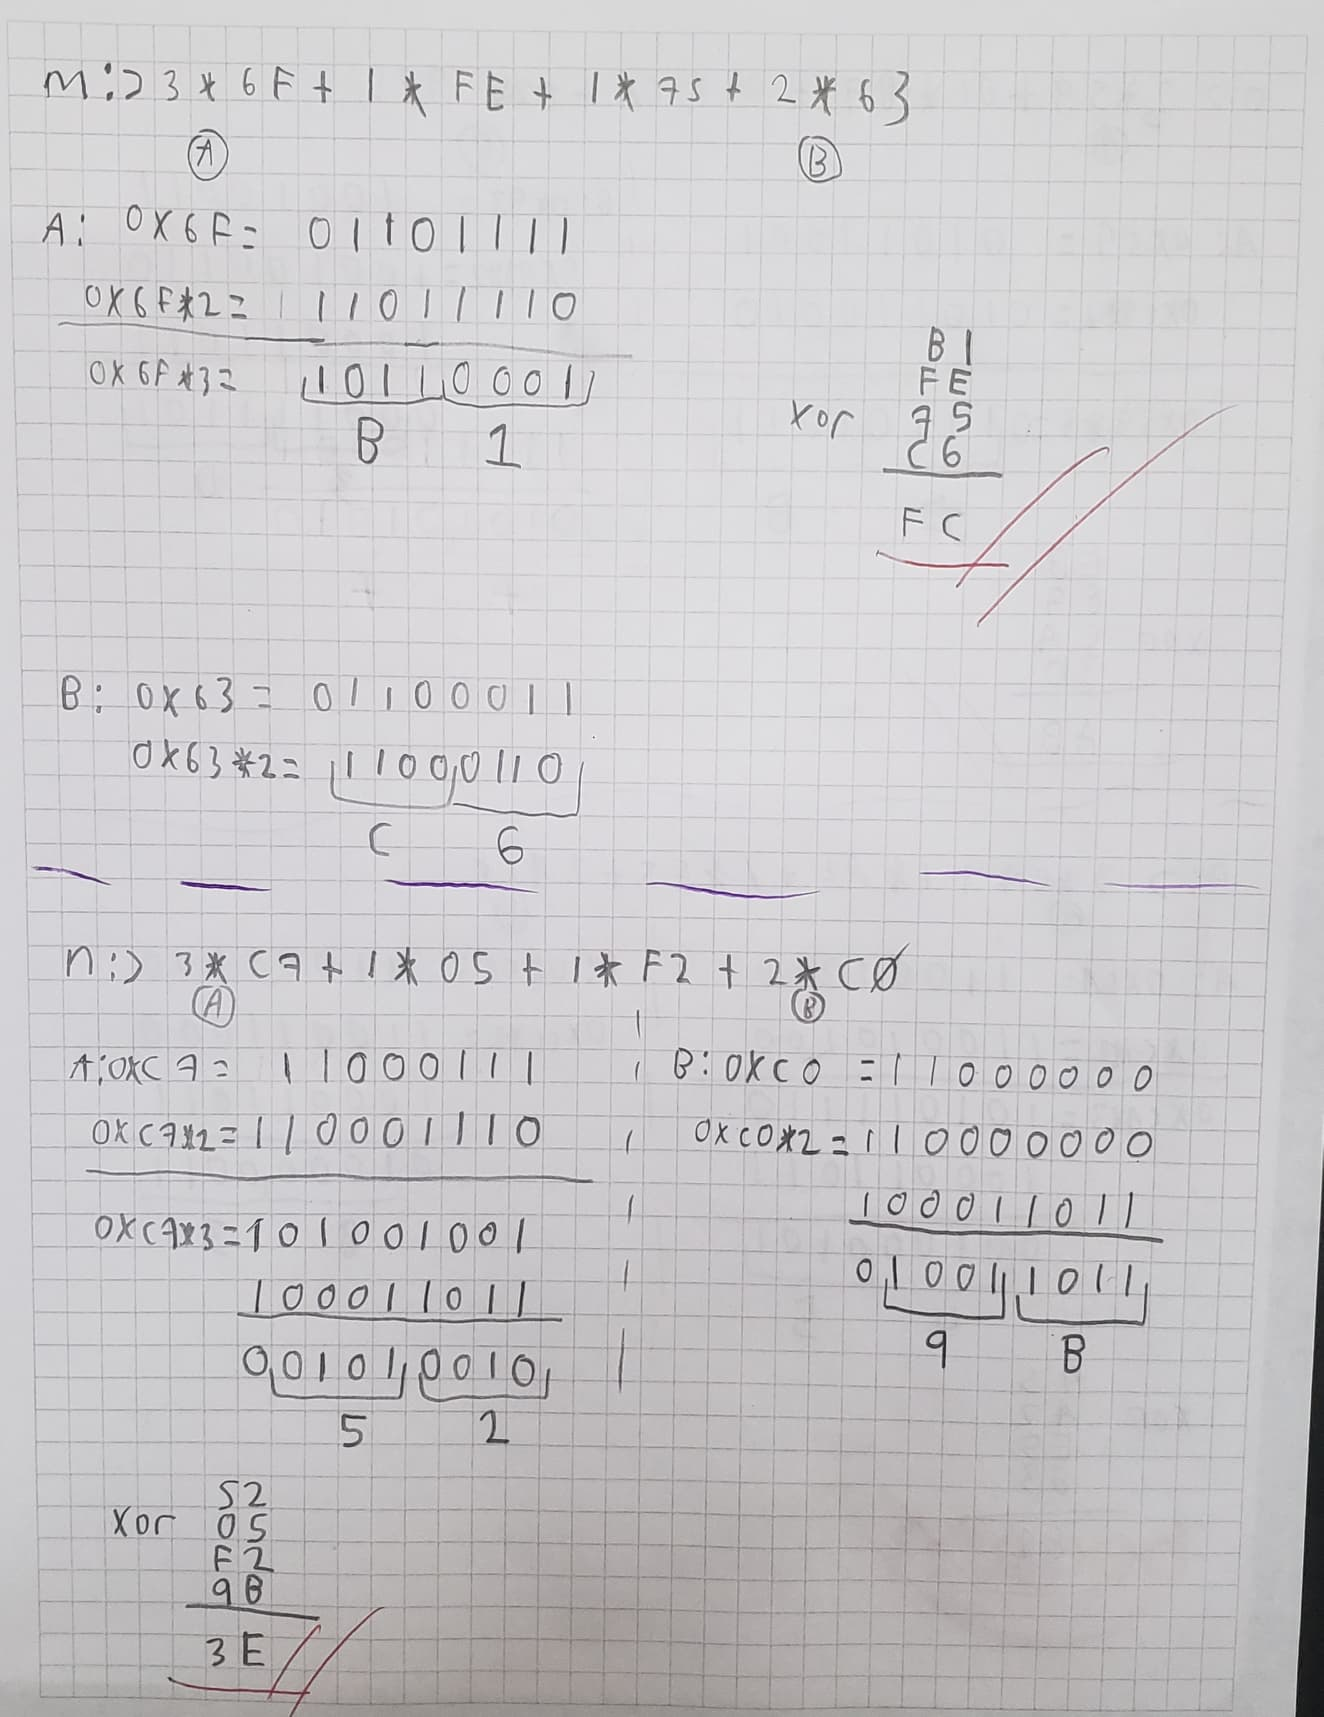 m:> 3 * 6F + 1 * FE + 1 * 75 + 2 * 63
A B
A: 0x6F = 01101111
0x6F*2 = 11011110
0x6F*3 = 10110001
B 1
B1
FE
xor 75
C6
FC
B: 0x63 = 01100011
0x63*2 = 11000110
C 6
n:> 3 * C7 + 1 * 05 + 1 * F2 + 2 * C0
A B
A: 0xC7 = 11000111
0xC7*2 = 110001110
0xC7*3 = 101001001
100011011
001010010
5 2
B: 0xC0 = 11000000
0xC0*2 = 110000000
100011011
010011011
9 B
52
xor 05
F2
9B
3E